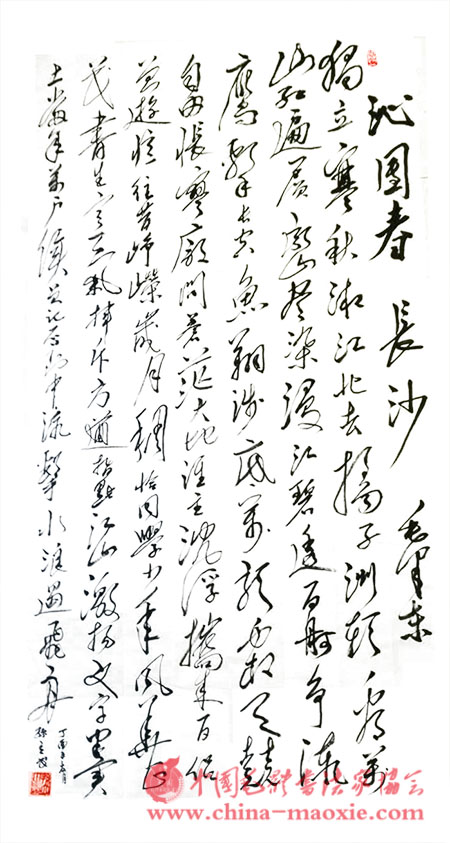 沁園春 長沙 毛澤東
獨立寒秋湘江北去橘子洲頭看萬
山紅遍層盡染漫江碧透百舸争流
鷹擊長空魚翔淺底萬類霜天競
自由悵寥廓問蒼茫大地誰主沉浮攜來百侣
曾遊憶往昔崢嶸歲月稠恰同學少年風華正
茂書生意氣揮斥方遒指點江山激揚文字糞
土當年萬户侯曾記否到中流擊水浪遏飛舟
丁酉年
中國毛體書法家協會
www.china-maoxie.com